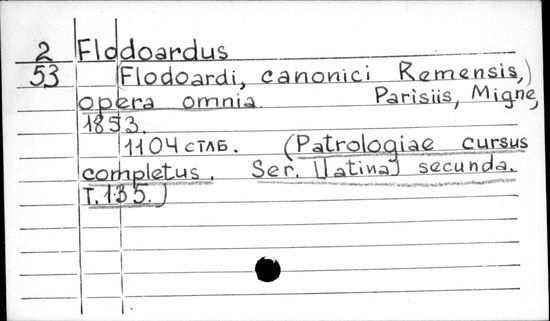 2 Flodoardus
53 Flodoardi, canonici Remensis,)
opera omnia Parisiis, Migne,
1853.
1104 стлб. (Patrologiae cursus
completus. Ser. [latina] secunda.
T. 135.)